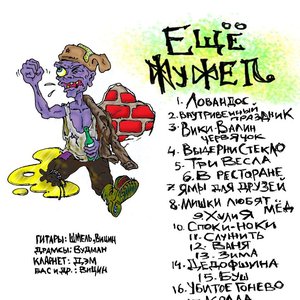 ЕЩЁ
ЖУЖЕЛ
1. ЛОВАНДОС
2. ВНУТРИВЕННЫЙ
ПРАЗДНИК
3. ВИКИ-ВАЛИН
ЧЕРВЯЧОК
4. ВЫДЕРНИ СТЕКЛО
5. ТРИ ВЕСЛА
6. В РЕСТОРАНЕ
7. ЯМЫ ДЛЯ ДРУЗЕЙ
8. МИШКИ ЛЮБЯТ МЁД
9. ХУЛИ Я
10. СПОКИ-НОКИ
11. СЛУЖИТЬ
12. ВАНЯ
13. ЗИМА
14. ДЕДОФШИНА
15. БУШ
16. УБИТОЕ ТОНЕВО
ГИТАРЫ: ШМЕЛЬ, ВИЦИН
ДРАМСЫ: ВУДМАН
КЛАЙНЕТ: ДЭМ
БАС И ДР.: ВИЦИН